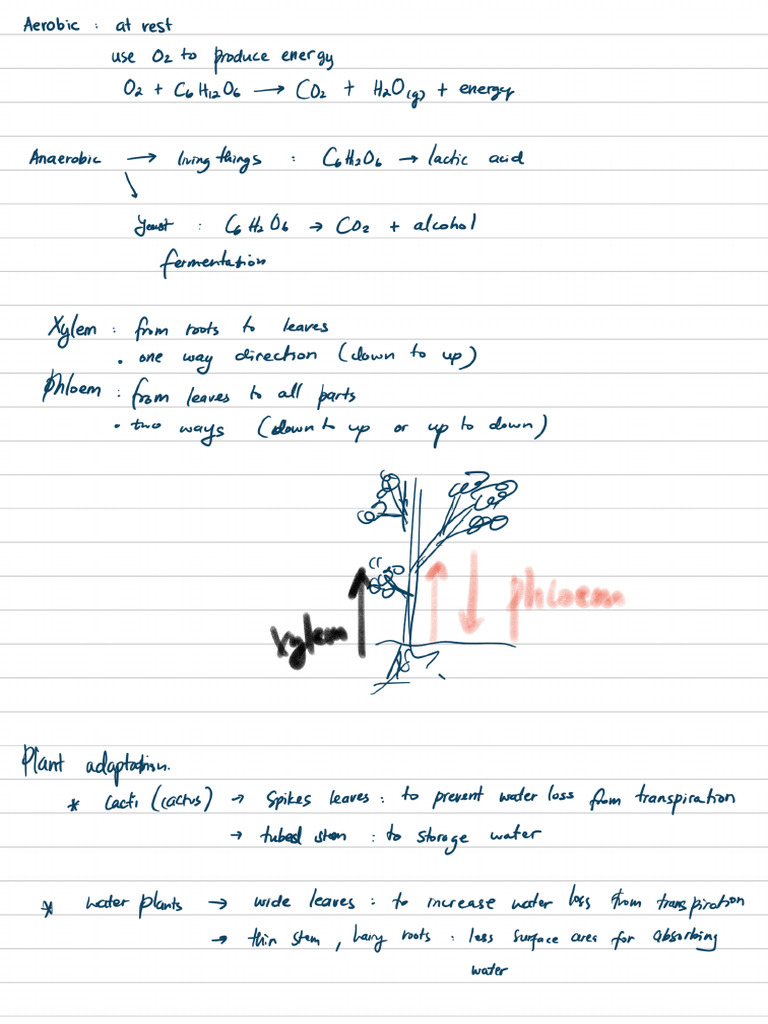 Aerobic : at rest
use O2 to produce energy
O2 + C6H12O6 → CO2 + H2O(g) + energy
Anaerobic → living things : C6H2O6 → lactic acid
Yeast : C6H2O6 → CO2 + alcohol
fermentation
Xylem : from roots to leaves
• one way direction (down to up)
Phloem : from leaves to all parts
• two ways (down to up or up to down)
Phloem
Xylem
Plant adaptation.
* Cacti (cactus) → Spikes leaves : to prevent water loss from transpiration
→ tubed stem : to storage water
* water plants → wide leaves : to increase water loss from transpiration
→ thin stem, hairy roots : less surface area for absorbing
water